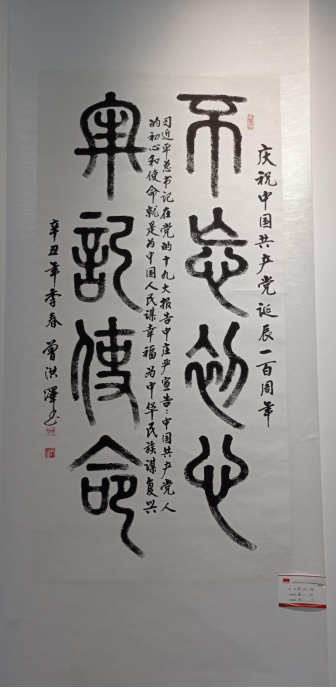 庆祝中国共产党诞辰一百周年
不忘初心
习近平总书记在党的十九大报告中庄严宣告:中国共产党人
的初心和使命就是为中国人民谋幸福为中华民族谋复兴
牢记使命
辛丑年季春 曾洪泽书